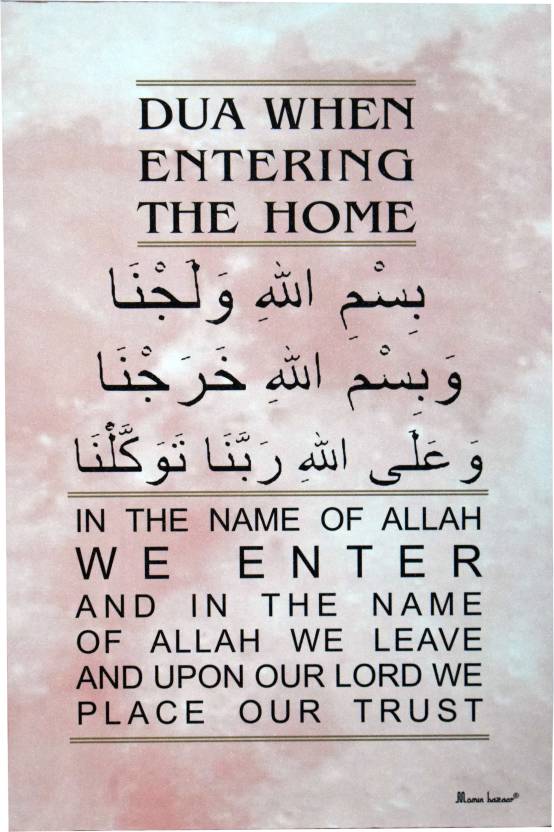 DUA WHEN
ENTERING
THE HOME
بِسْمِ اللهِ وَلَجْنَا
وَبِسْمِ اللهِ خَرَجْنَا
وَعَلَى اللهِ رَبَّنَا تَوَكَّلْنَا
IN THE NAME OF ALLAH
WE ENTER
AND IN THE NAME
OF ALLAH WE LEAVE
AND UPON OUR LORD WE
PLACE OUR TRUST
Momin bazaar®